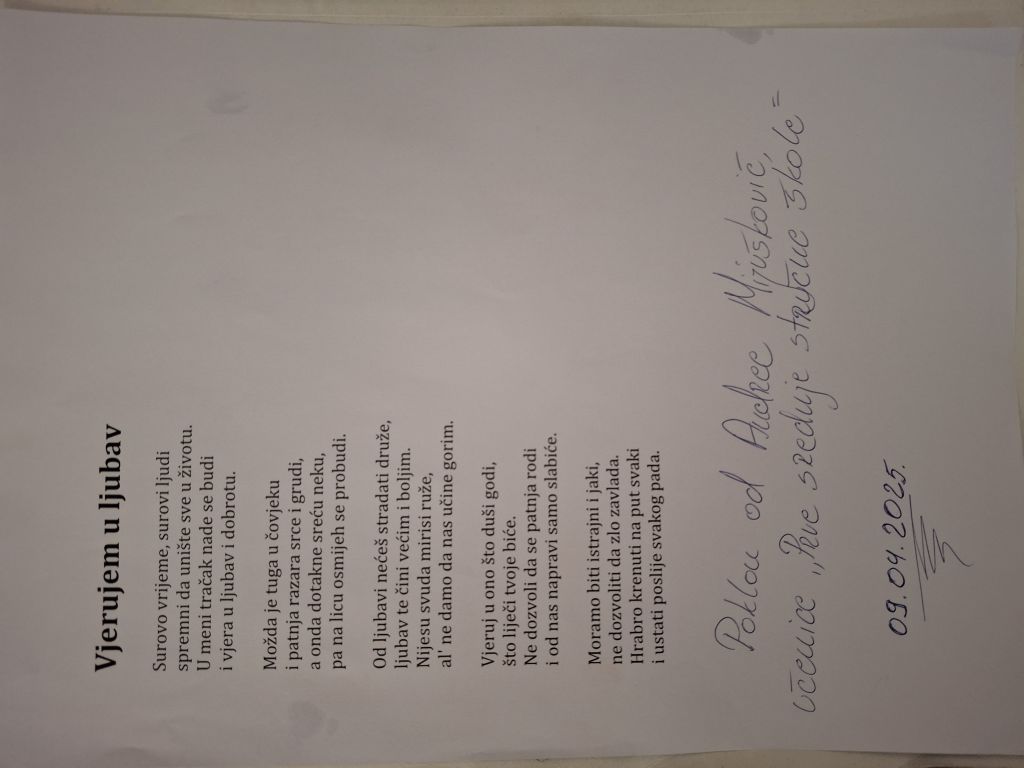 Vjerujem u ljubav
Surovo vrijeme, surovi ljudi
spremni da unište sve u životu.
U meni tračak nade se budi
i vjera u ljubav i dobrotu.
Možda je tuga u čovjeku
i patnja razara srce i grudi,
a onda dotakne sreću neku,
pa na licu osmijeh se probudi.
Od ljubavi nećeš stradati druže,
ljubav te čini većim i boljim.
Nijesu svuda mirisi ruže,
al' ne damo da nas učine gorim.
Vjeruj u ono što duši godi,
što liječi tvoje biće.
Ne dozvoli da se patnja rodi
i od nas napravi samo slabiće.
Moramo biti istrajni i jaki,
ne dozvoliti da zlo zavlada.
Hrabro krenuti na put svaki
i ustati poslije svakog pada.
Poklon od Andree Mijušković,
učenice „Prve srednje stručne škole"
09.04.2025.